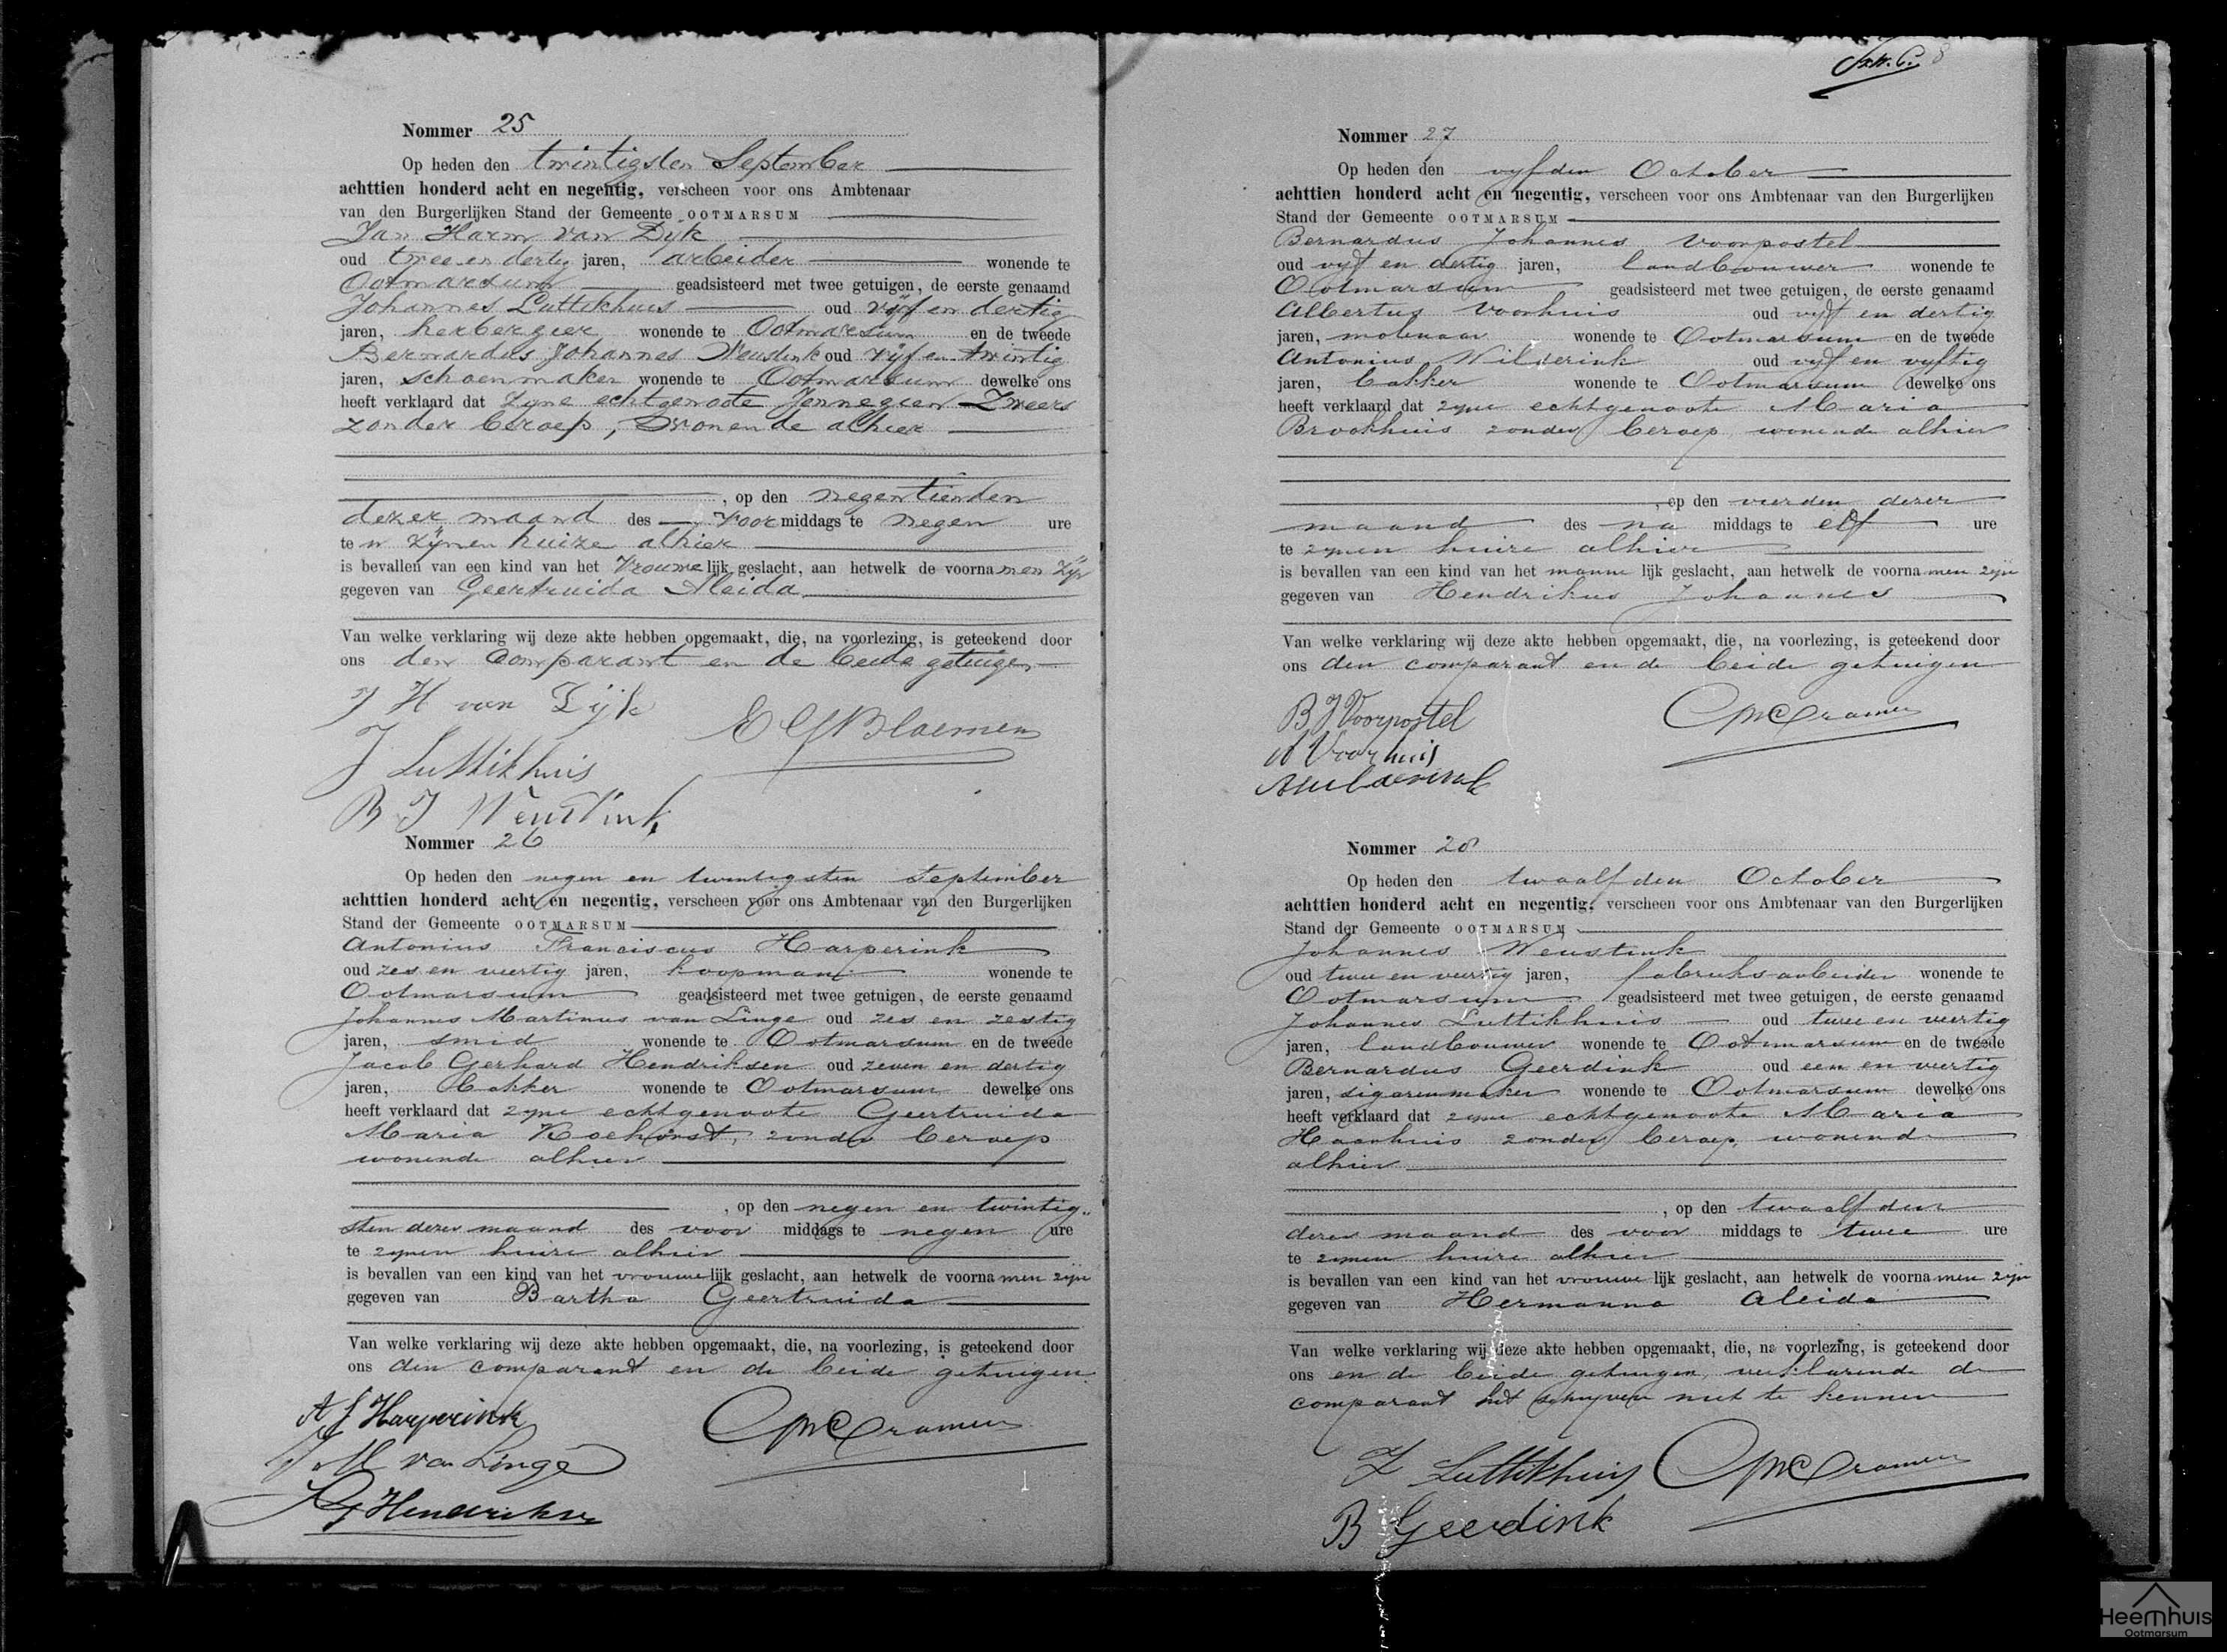 Nommer 25
Op heden den twintigsten September
achttien honderd acht en negentig, verscheen voor ons Ambtenaar
van den Burgerlijken Stand der Gemeente OOTMARSUM
Jan Harm van Dijk
oud twee en dertig jaren, arbeider wonende te
Ootmarsum geadsisteerd met twee getuigen, de eerste genaamd
Johannes Luttikhuis oud vijf en dertig
jaren, herbergier wonende te Ootmarsum en de tweede
Bernardus Johannes Weustink oud vijf en twintig
jaren, schoenmaker wonende te Ootmarsum dewelke ons
heeft verklaard dat zyne echtgenoote Jennegien Zweers
zonder beroep, wonende alhier
, op den negentienden
dezer maand des voor middags te negen ure
te in zijnen huize alhier
is bevallen van een kind van het vrouwe lijk geslacht, aan hetwelk de voorna men zijn
gegeven van Geertruida Aleida
Van welke verklaring wij deze akte hebben opgemaakt, die, na voorlezing, is geteekend door
ons den comparant en de beide getuigen
J H van Dijk
E G Bloemen
J Luttikhuis
B J Weustink
Nommer 26
Op heden den negen en twintigsten September
achttien honderd acht en negentig, verscheen voor ons Ambtenaar van den Burgerlijken
Stand der Gemeente OOTMARSUM
Antonius Franciscus Harperink
oud zes en veertig jaren, koopman wonende te
Ootmarsum geadsisteerd met twee getuigen, de eerste genaamd
Johannes Martinus van Linge oud zes en zestig
jaren, smid wonende te Ootmarsum en de tweede
Jacob Gerhard Hendriksen oud zeven en dertig
jaren, bakker wonende te Ootmarsum dewelke ons
heeft verklaard dat zyne echtgenoote Geertruida
Maria Kochorst, zonder beroep
wonende alhier
, op den negen en twintig„
sten dezer maand des voor middags te negen ure
te zynen huize alhier
is bevallen van een kind van het vrouwe lijk geslacht, aan hetwelk de voorna men zijn
gegeven van Bartha Geertruida
Van welke verklaring wij deze akte hebben opgemaakt, die, na voorlezing, is geteekend door
ons den comparant en de beide getuigen.
A F Harperink
Cramer
J M van Linge
J G Hendriksen
8
Nommer 27
Op heden den vyfden October
achttien honderd acht en negentig, verscheen voor ons Ambtenaar van den Burgerlijken
Stand der Gemeente OOTMARSUM
Bernardus Johannes Voorpostel
oud vyf en dertig jaren, landbouwer wonende te
Ootmarsum geadsisteerd met twee getuigen, de eerste genaamd
Albertus Voorhuis oud vyf en dertig
jaren, molenaar wonende te Ootmarsum en de tweede
Antonius Wilderink oud vyf en vyftig
jaren, bakker wonende te Ootmarsum dewelke ons
heeft verklaard dat zyne echtgenoote Maria
Brookhuis zonder beroep wonende alhier
, op den vierden dezer
maand des na middags te elf ure
te zynen huize alhier
is bevallen van een kind van het manne lijk geslacht, aan hetwelk de voorna men zijn
gegeven van Hendrikus Johannes
Van welke verklaring wij deze akte hebben opgemaakt, die, na voorlezing, is geteekend door
ons den comparant en de beide getuigen
B J Voorpostel
Cramer
A Voorhuis
A Wilderink
Nommer 28
Op heden den twaalfden October
achttien honderd acht en negentig, verscheen voor ons Ambtenaar van den Burgerlijken
Stand der Gemeente OOTMARSUM
Johannes Weustink
oud twee en veertig jaren, fabrieksarbeider wonende te
Ootmarsum geadsisteerd met twee getuigen, de eerste genaamd
Johannes Luttikhuis oud twee en veertig
jaren, landbouwer wonende te Ootmarsum en de tweede
Bernardus Geerdink oud een en veertig
jaren, sigarenmaker wonende te Ootmarsum dewelke ons
heeft verklaard dat zyne echtgenoote Maria
Haarhuis zonder beroep, wonende
alhier
, op den twaalfden
dezer maand des voor middags te twee ure
te zynen huize alhier
is bevallen van een kind van het vrouwe lijk geslacht, aan hetwelk de voorna men zijn
gegeven van Hermanna Aleida
Van welke verklaring wij deze akte hebben opgemaakt, die, na voorlezing, is geteekend door
ons en de beide getuigen, verklarende de
comparant het schryven niet te kennen
J Luttikhuis Cramer
B Geerdink
Heemhuis
Ootmarsum